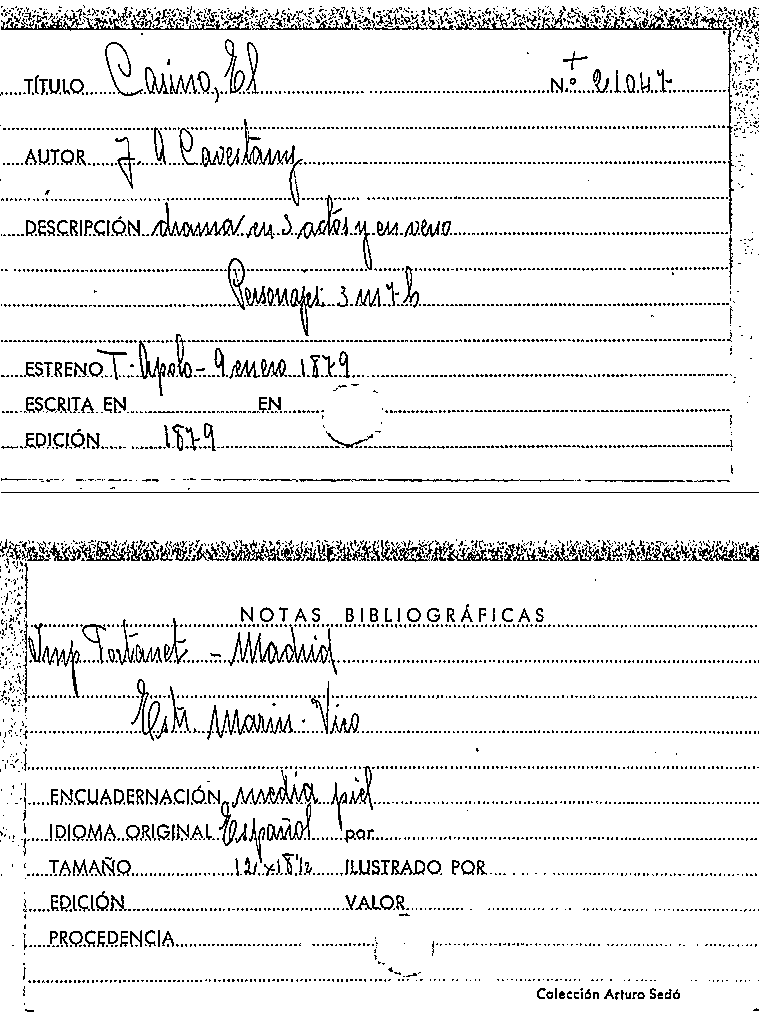 TÍTULO Casino, El Nº 21047
AUTOR J. A Cavestany
DESCRIPCIÓN drama en 3 actos y en verso
Personajes: 3 m 7 h
ESTRENO T. Apolo - 9 enero 1879
ESCRITA EN EN
EDICIÓN 1879
NOTAS BIBLIOGRÁFICAS
Imp Fortanet - Madrid
Estr. Marin - Vico
ENCUADERNACIÓN media piel
IDIOMA ORIGINAL Español por
TAMAÑO 12 x 18 ½ ILUSTRADO POR
EDICIÓN VALOR
PROCEDENCIA
Colección Arturo Sedó